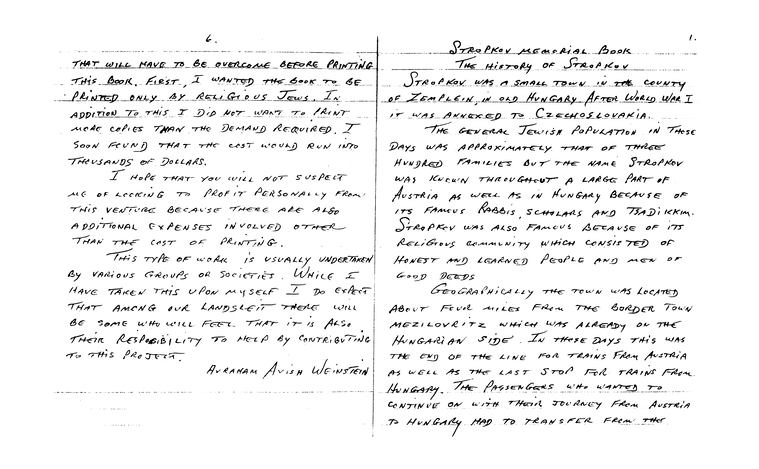 6.
THAT WILL HAVE TO BE OVERCOME BEFORE PRINTING
THIS BOOK. FIRST, I WANTED THE BOOK TO BE
PRINTED ONLY BY RELIGIOUS JEWS. IN
ADDITION TO THIS I DID NOT WANT TO PRINT
MORE COPIES THAN THE DEMAND REQUIRED. I
SOON FOUND THAT THE COST WOULD RUN INTO
THOUSANDS OF DOLLARS.
I HOPE THAT YOU WILL NOT SUSPECT
ME OF LOOKING TO PROFIT PERSONALLY FROM
THIS VENTURE BECAUSE THERE ARE ALSO
ADDITIONAL EXPENSES INVOLVED OTHER
THAN THE COST OF PRINTING.
THIS TYPE OF WORK IS USUALLY UNDERTAKEN
BY VARIOUS GROUPS OR SOCIETIES. WHILE I
HAVE TAKEN THIS UPON MYSELF I DO EXPECT
THAT AMONG OUR LANDSLEIT THERE WILL
BE SOME WHO WILL FEEL THAT IT IS ALSO
THEIR RESPOBILITY TO HELP BY CONTRIBUTING
TO THIS PROJECT.
AVRAHAM AVISH WEINSTEIN
1.
STROPKOV MEMORIAL BOOK
THE HISTORY OF STROPKOV
STROPKOV WAS A SMALL TOWN IN THE COUNTY
OF ZEMPLEIN, IN OLD HUNGARY. AFTER WORLD WAR I
IT WAS ANNEXED TO CZECHOSLOVAKIA.
THE GENERAL JEWISH POPULATION IN THOSE
DAYS WAS APPROXIMATELY THAT OF THREE
HUNDRED FAMILIES BUT THE NAME STROPKOV
WAS KNOWN THROUGHOUT A LARGE PART OF
AUSTRIA AS WELL AS IN HUNGARY BECAUSE OF
ITS FAMOUS RABBIS, SCHOLARS AND TSADIKKIM.
STROPKOV WAS ALSO FAMOUS BECAUSE OF ITS
RELIGIOUS COMMUNITY WHICH CONSISTED OF
HONEST AND LEARNED PEOPLE AND MEN OF
GOOD DEEDS
GEOGRAPHICALLY THE TOWN WAS LOCATED
ABOUT FOUR MILES FROM THE BORDER TOWN
MEZILOVRITZ WHICH WAS ALREADY ON THE
HUNGARIAN SIDE. IN THOSE DAYS THIS WAS
THE END OF THE LINE FOR TRAINS FROM AUSTRIA
AS WELL AS THE LAST STOP FOR TRAINS FROM
HUNGARY. THE PASSENGERS WHO WANTED TO
CONTINUE ON WITH THEIR JOURNEY FROM AUSTRIA
TO HUNGARY HAD TO TRANSFER FROM THE